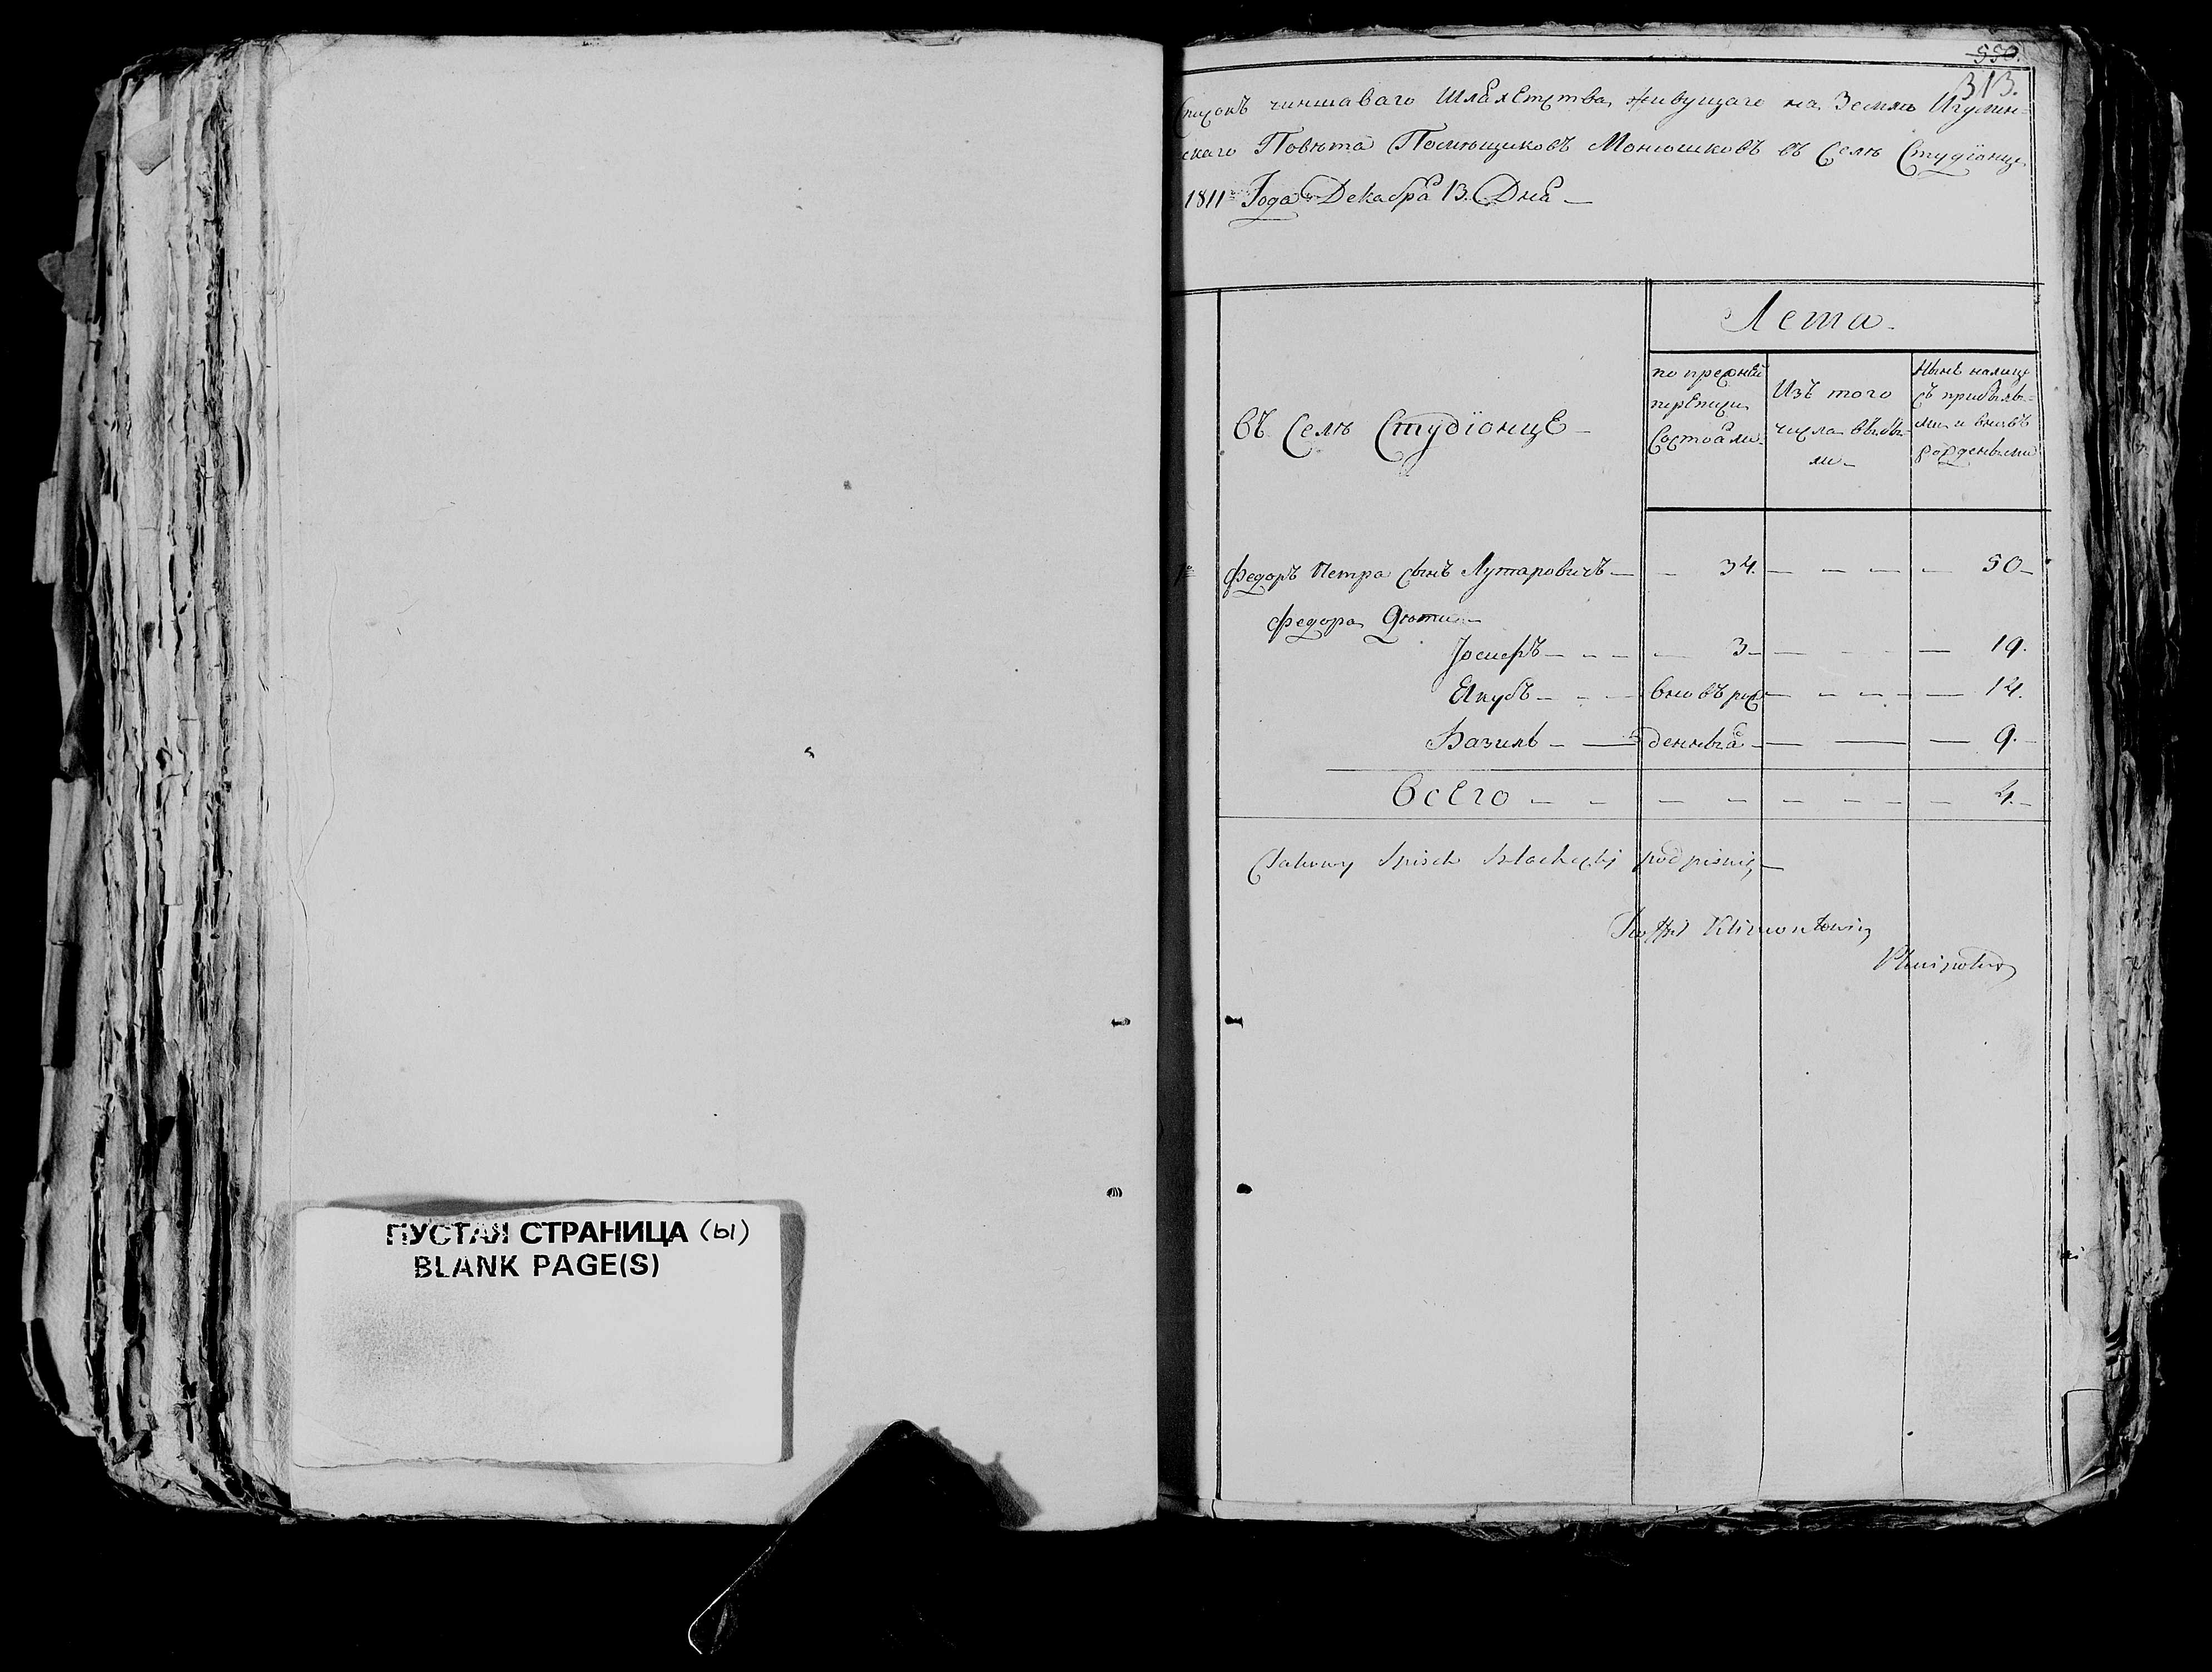 ПУСТАЯ СТРАНИЦА (ы)
BLANK PAGE(S)
550.
313.
Списокъ чиншаваго Шляхетства живущаго на Земле Игумен-
скаго Повѣта Помѣщиковъ Монюшковъ въ Селѣ Студіонце
1811 Года Декабря 13. Дня —
Лета -
въ Селѣ Студіонце -
по прежней
переписи
Состояли -
Изъ того
числа выбы-
ли -
Нынѣ налицо
съ прибылы-
ми и вновь
рожденными
Федоръ Петра сынъ Лутаровичъ — - 34. — — — — 50 -
Федора Дѣти -
Іосифъ — - - — 3 - — - - — 19.
Якубъ — - - вновъ рож — - - - — 14.
Базиль - — денныя — — — 9. -
Всего - - - - - - - - 4. -
Takowy Spisek Szlachecki podpisuię —
Klimontowicz